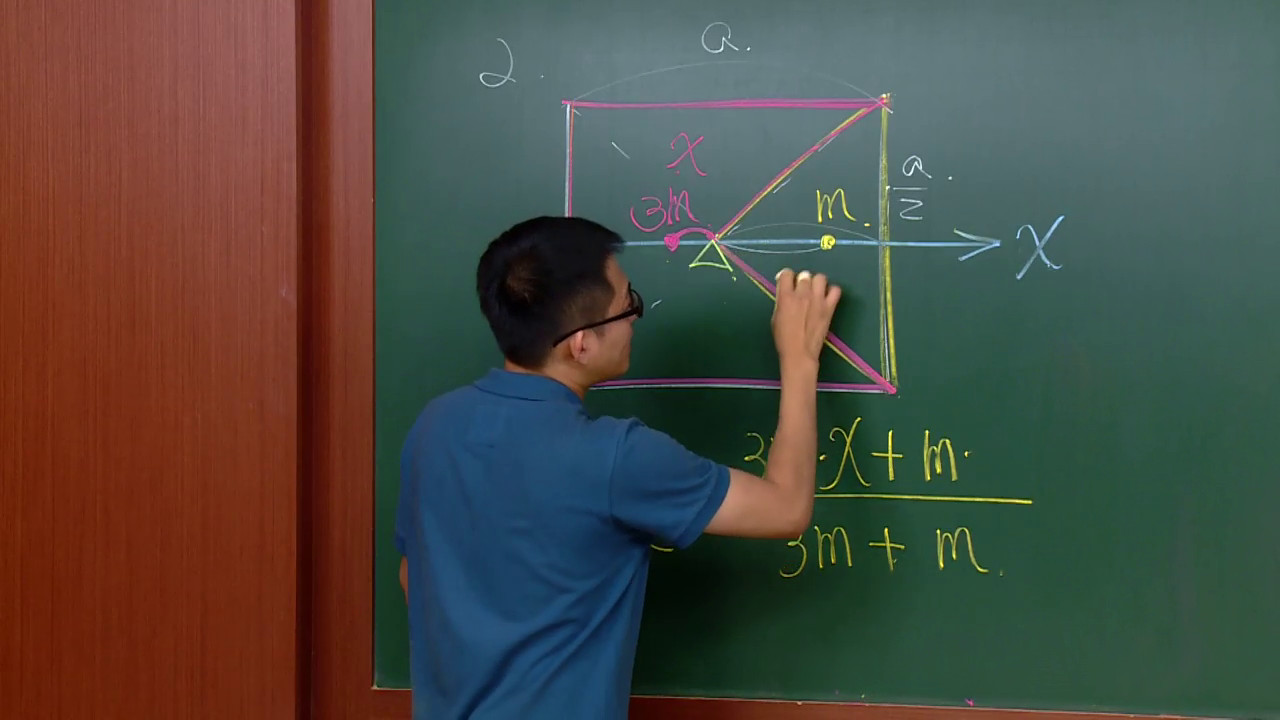 2.
a.
x
3m
m.
a/2.
X
·x+m·
3m+m.